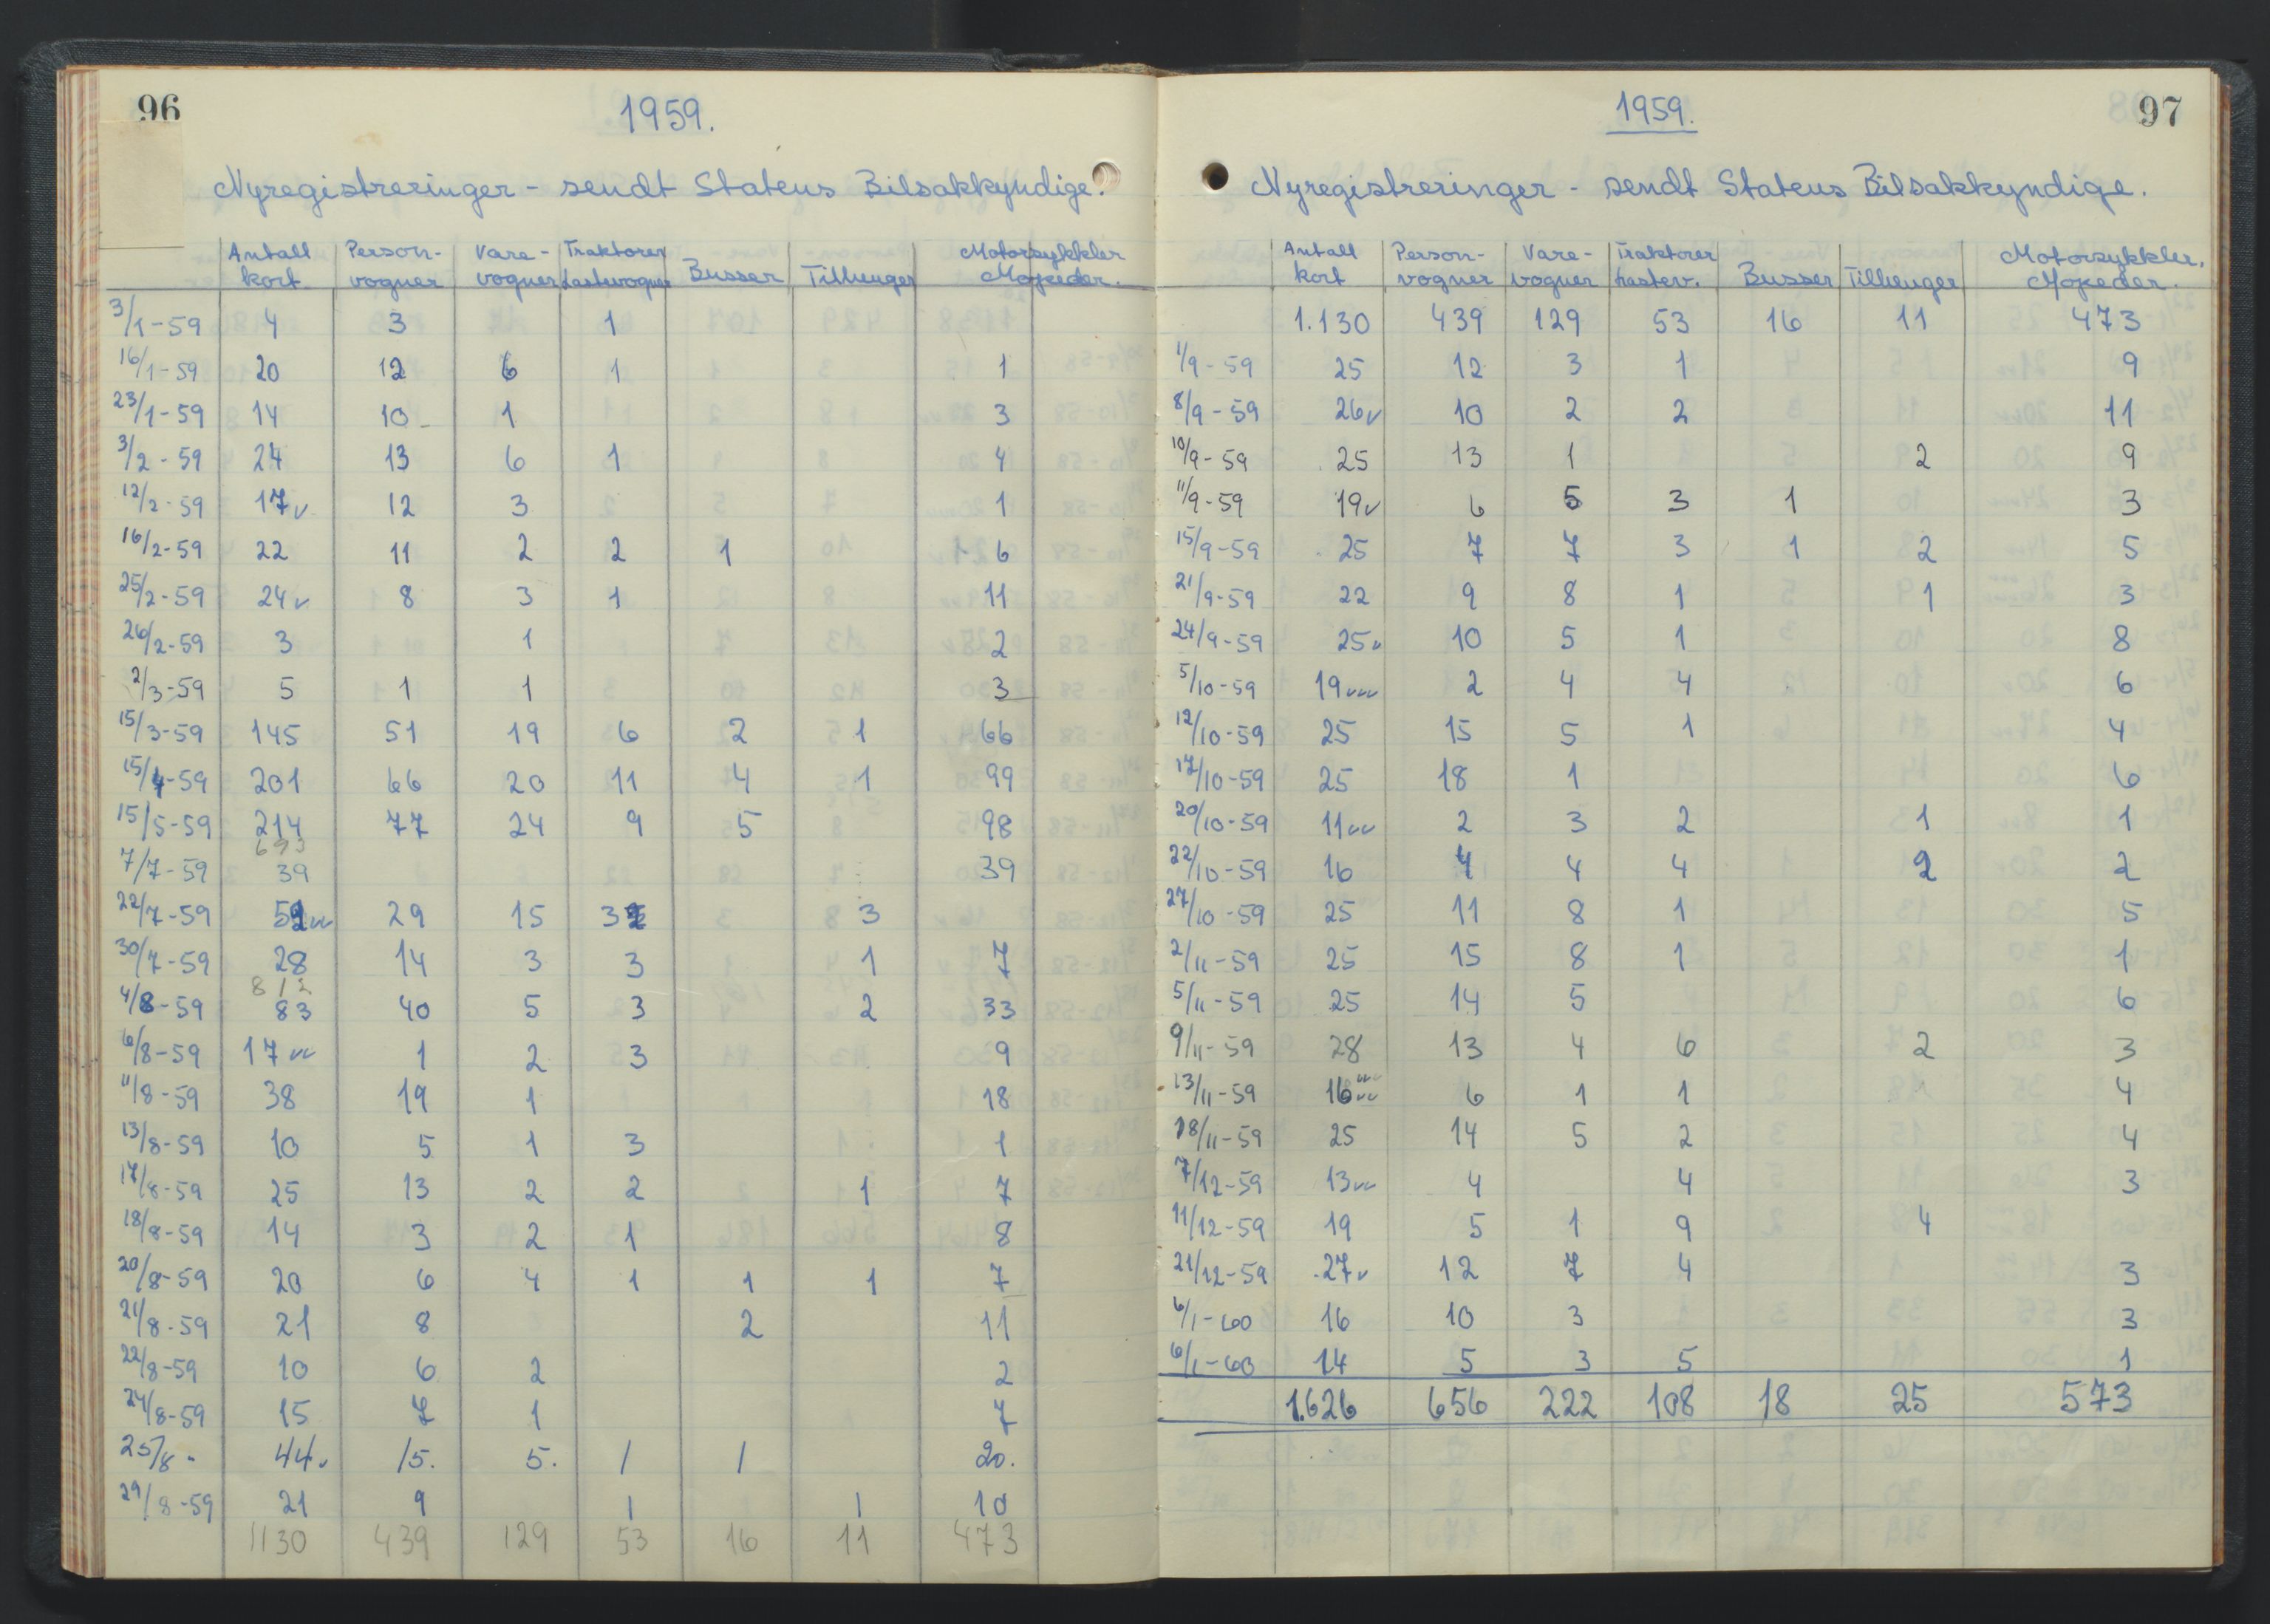 96
1959.
Nyregistreringer - sendt Statens Bilsakkyndige.
Antall kort Person-vogner Vare-vogner Traktorer Lastevogner Busser Tilhenger Motorsykkler Mopeder.
3/1-59 4 3 1
16/1-59 20 12 6 1 1
23/1-59 14 10 1 3
3/2-59 24 13 6 1 4
12/2-59 17v 12 3 1
16/2-59 22 11 2 2 1 6
25/2-59 24v 8 3 1 11
26/2-59 3 1 2
2/3-59 5 1 1 3
15/3-59 145 51 19 6 2 1 66
15/4-59 201 66 20 11 4 1 99
15/5-59 214 77 24 9 5 98
693
7/7-59 39 39
22/7-59 52vv 29 15 3 3
30/7-59 28 14 3 3 1 7
812
4/8-59 83 40 5 3 2 33
6/8-59 17vv 1 2 3 9
11/8-59 38 19 1 18
13/8-59 10 5 1 3 1
17/8-59 25 13 2 2 1 7
18/8-59 14 3 2 1 8
20/8-59 20 6 4 1 1 1 7
21/8-59 21 8 2 11
22/8-59 10 6 2 2
24/8-59 15 7 1 7
25/8- 44v 15. 5. 1 1 20.
29/8-59 21 9 1 1 10
1130 439 129 53 16 11 473
97
1959.
Nyregistreringer - sendt Statens Bilsakkyndige.
Antall kort Person-vogner Vare-vogner Traktorer Lastev. Busser Tilhenger Motorsykkler. Mopeder.
1.130 439 129 53 16 11 473
1/9-59 25 12 3 1 9
8/9-59 26v 10 2 2 11
10/9-59 25 13 1 2 9
11/9-59 19v 6 5 3 1 3
15/9-59 25 7 7 3 1 2 5
21/9-59 22 9 8 1 1 3
24/9-59 25v 10 5 1 8
5/10-59 19vvv 2 4 4 6
12/10-59 25 15 5 1 4
17/10-59 25 18 1 6
20/10-59 11vv 2 3 2 1 1
22/10-59 16 4 4 4 2 2
27/10-59 25 11 8 1 5
2/11-59 25 15 8 1 1
5/11-59 25 14 5 6
9/11-59 28 13 4 6 2 3
13/11-59 16vvvv 6 1 1 4
18/11-59 25 14 5 2 4
7/12-59 13vv 4 4 3
11/12-59 19 5 1 9 4
21/12-59 27v 12 7 4 3
6/1-60 16 10 3 3
6/1-60 14 5 3 5 1
1.626 656 222 108 18 25 573